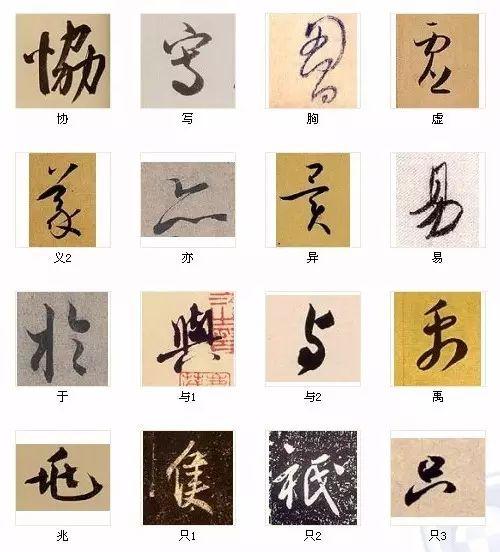 协 写 胸 虚
义2 亦 异 易
于 与1 与2 禹
兆 只1 只2 只3